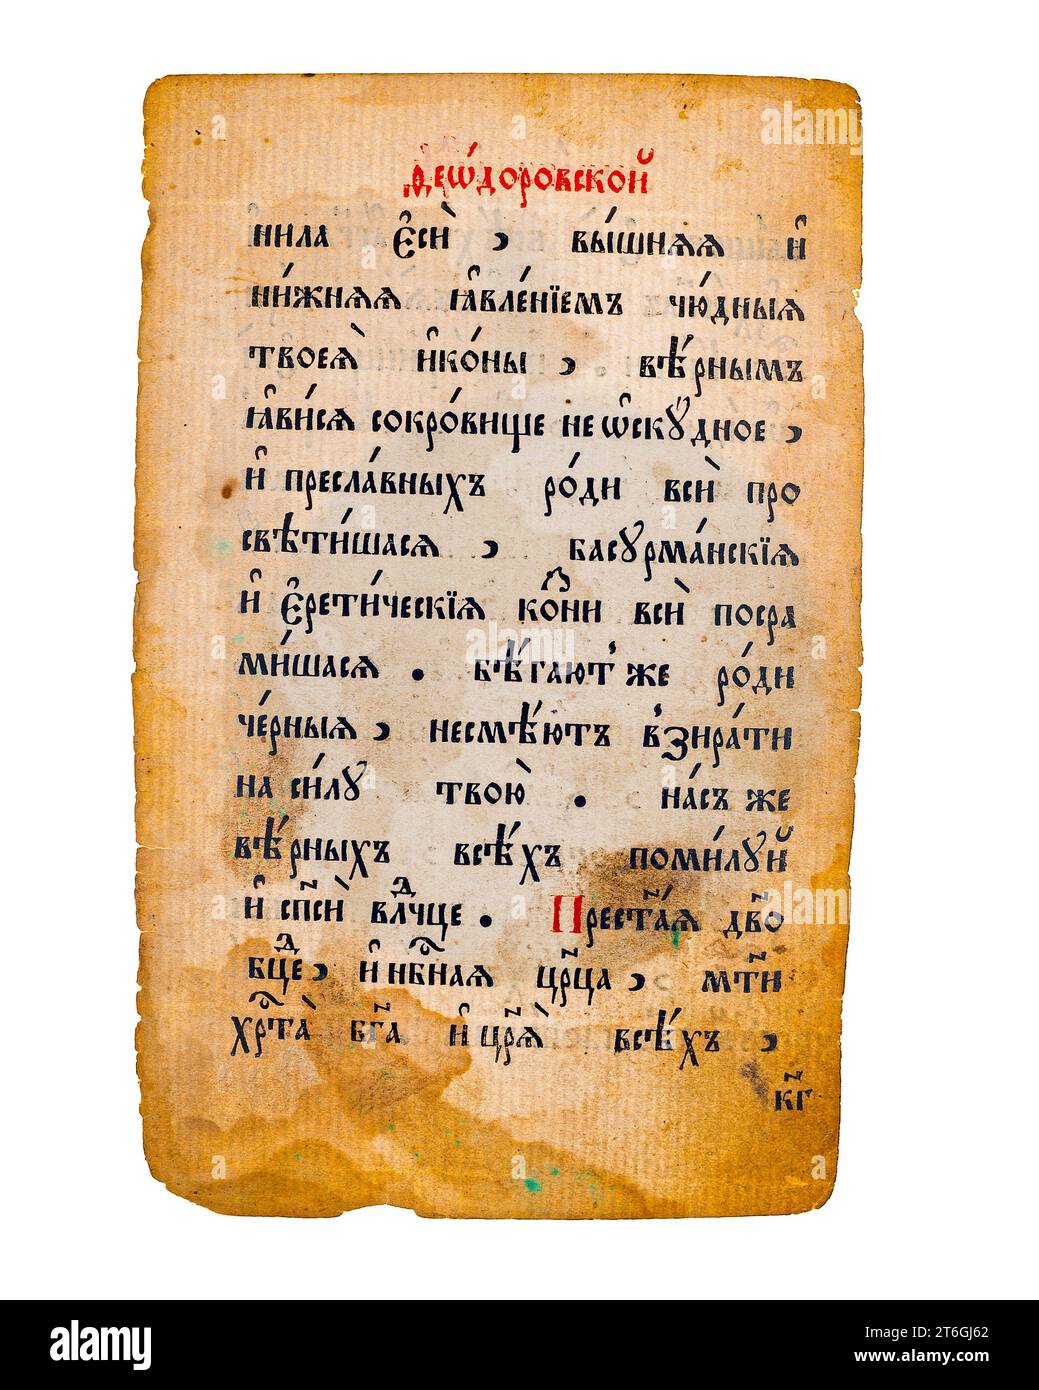 Ѳеѡ́доровской
нила є҆сѝ , вы́шняѧ и҆
ни́жняѧ ꙗ҆вле́нїемъ чю́дныѧ
твоеѧ̀ и҆ко́ны , вѣ́рнымъ
ꙗ҆ви́сѧ сокро́вище не ѡ҆скꙋ́дное ,
и҆ пресла́вныхъ ро́ди всѝ про
свѣти́шасѧ , басꙋрма́нскїѧ
и҆ є҆рети́ческїѧ ко́ни всѝ посра
ми́шасѧ . бѣ́гают̾ же ро́ди
че́рныѧ , несмѣ́ютъ в̾зира́ти
на си́лꙋ твою̀ . на́съ же
вѣ́рныхъ всѣ́хъ поми́лꙋй
и҆ сп҃сѝ влⷣчце . Прест҃а́ѧ дв҃о
бцⷣе , и҆ нбⷭ҇наѧ цр҃ца , мт҃и
хрⷭ҇та̀ бг҃а и҆ цр҃ѧ̀ всѣ́хъ ,
кг҃
alamy
a
alamy
Image ID: 2T6GJ62
www.alamy.com